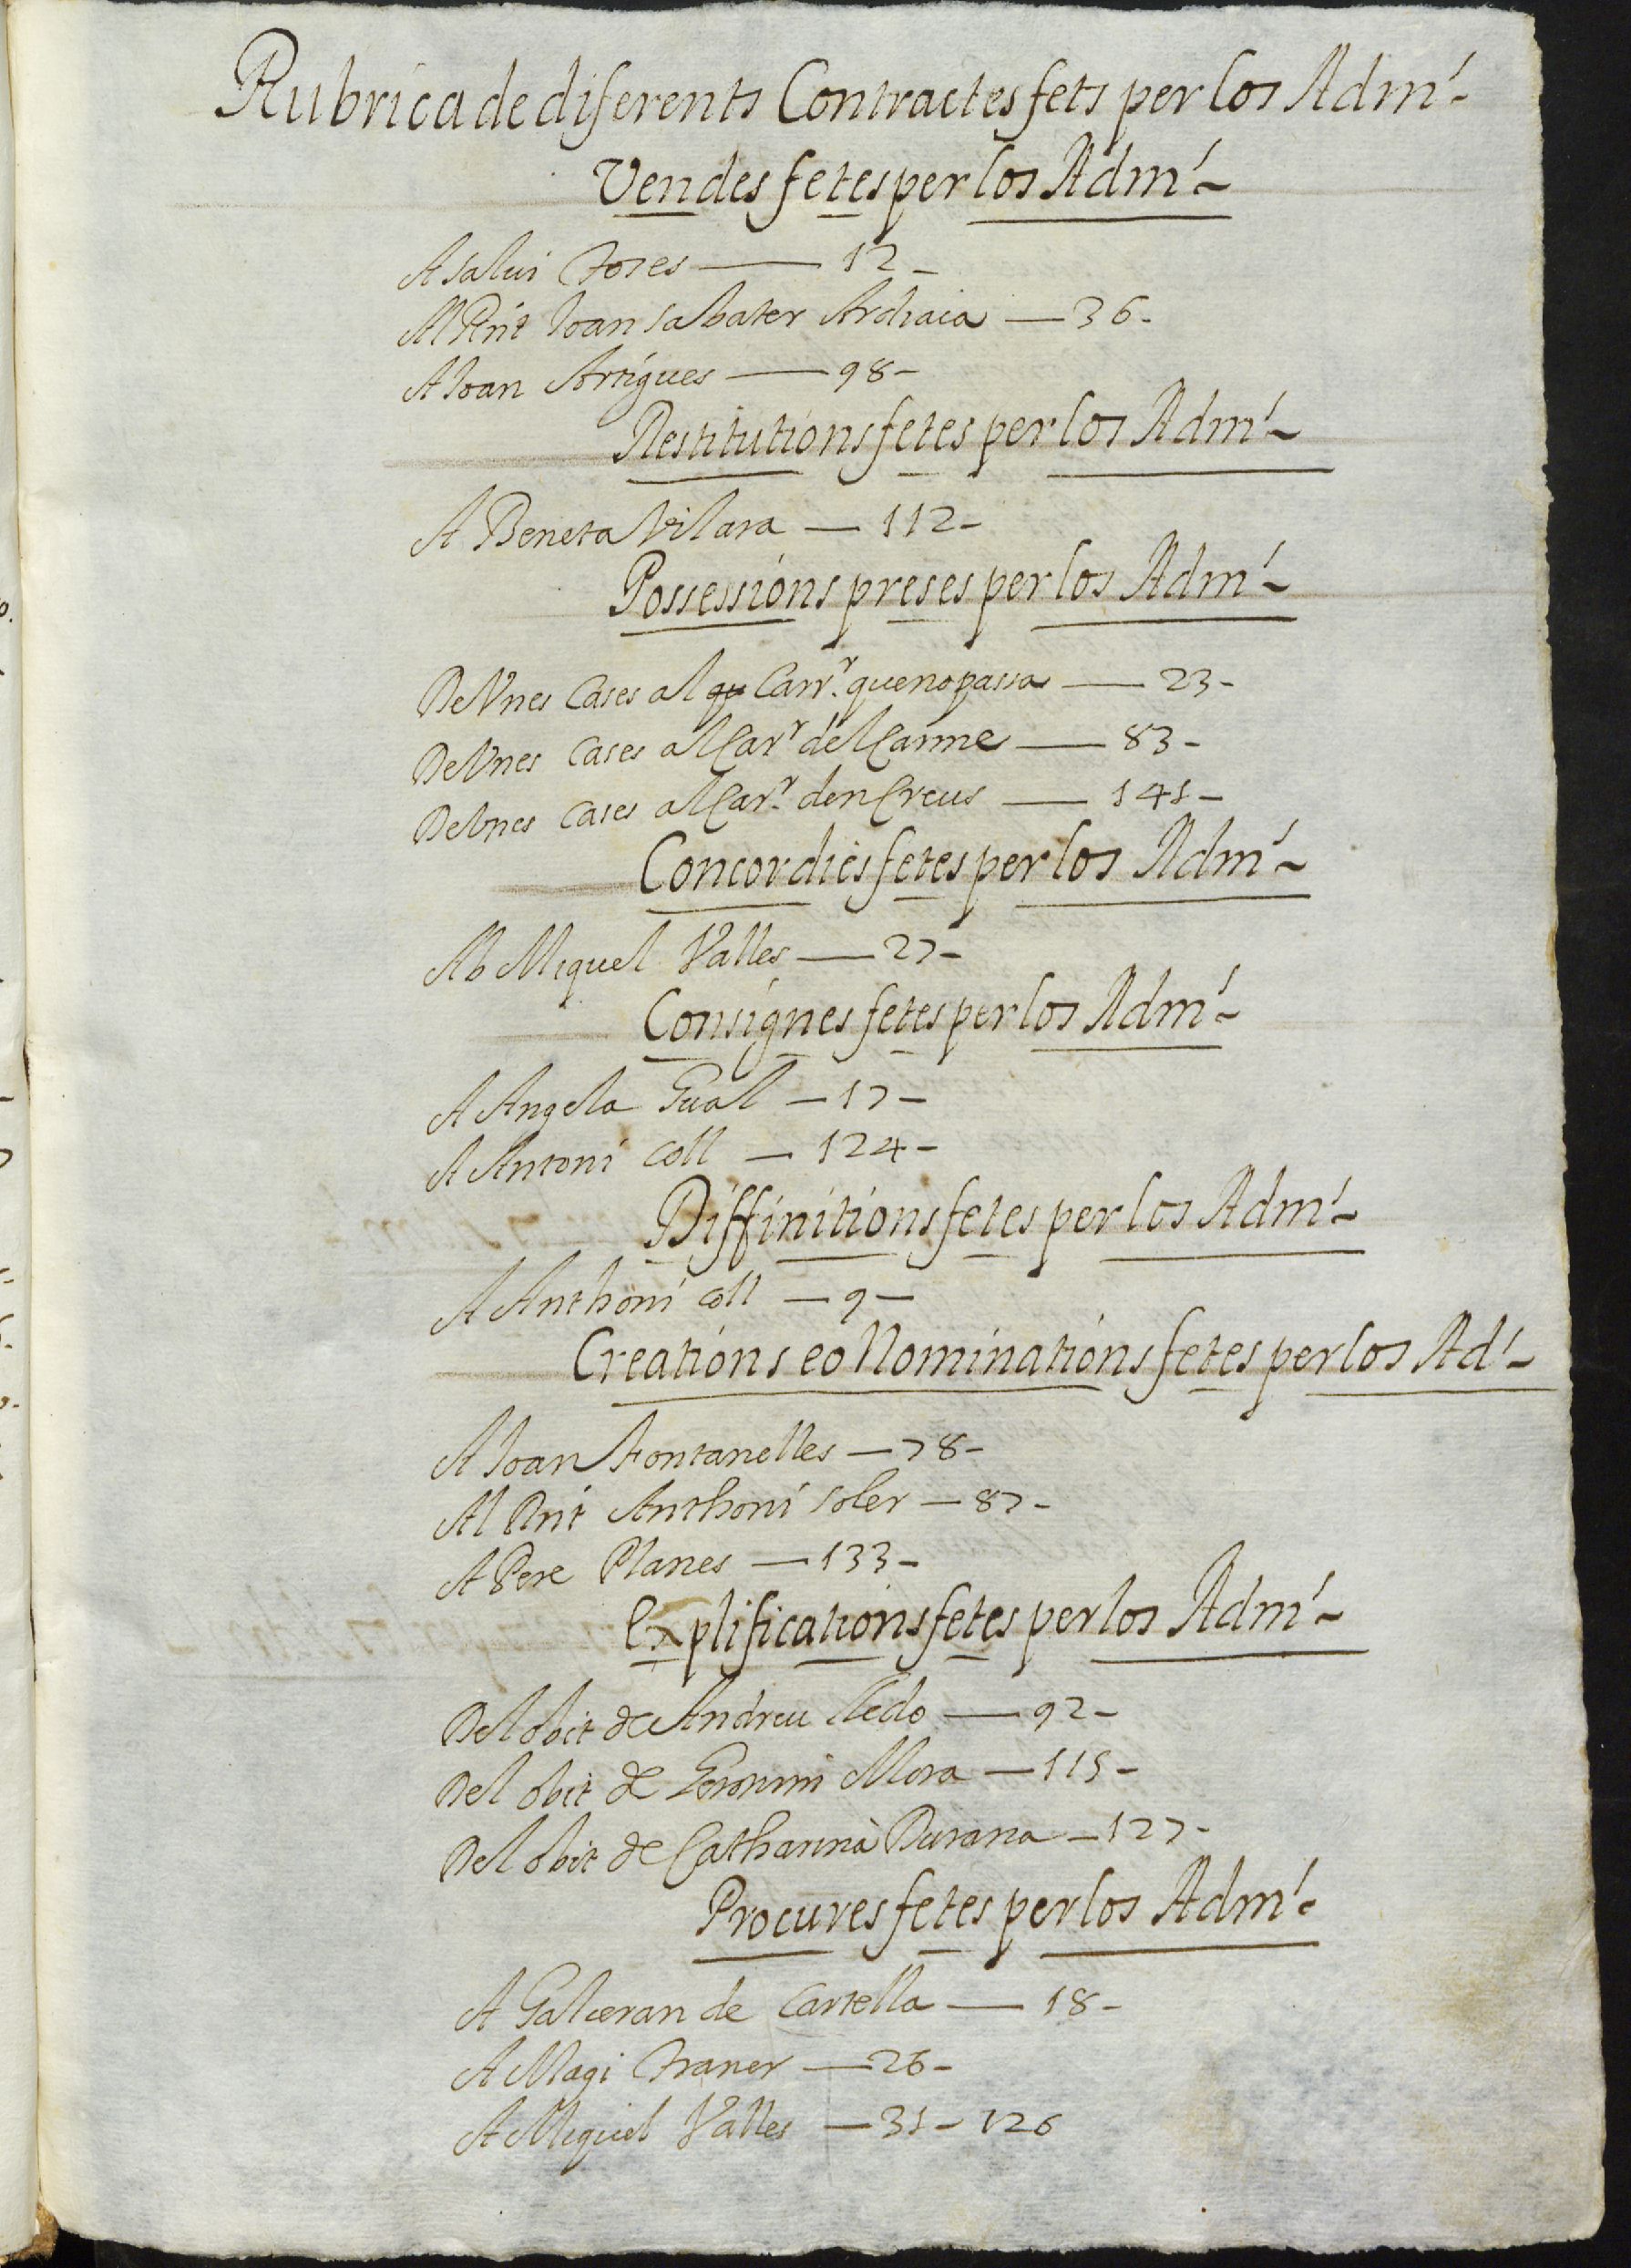 Rubrica de diferents Contractes fets per los Adm´-
Vendes fetes per los Adm´~
A Salvi Fores — 12 -
Al Rnt Joan Sabater Ardiaca — 36-
A Joan Artigues — 98-
Restitutions fetes per los Adm´~
A Beneta Vilara — 112-
Possessions preses per los Adm´~
De Vnes Cases al Carr.r que no passa — 23-
De Vnes Cases al Carr del Carme — 83-
De Vnes Cases al Car.r den Creus — 141-
Concordies fetes per los Adm´~
Ab Miquel Valles — 27-
Consignes fetes per los Adm´~
A Angela Gual — 17-
A Antoni Coll — 124-
Diffinitions fetes per los Adm´~
A Anthoni Coll — 9-
Creations eo Nominations fetes per los Ad´~
A Joan Fontanelles — 78-
Al Rnt Anthoni Soler — 87-
A Pere Planes — 133-
Explifications fetes per los Adm´~
Del obit de Andreu Lledo — 92-
Del obit de Geronim Mora — 115-
Del obit de Catharina Durana — 127-
Procures fetes per los Adm´~
A Galceran de Cartella — 18-
A Magi Franer — 26-
A Miquel Valles — 31- 126